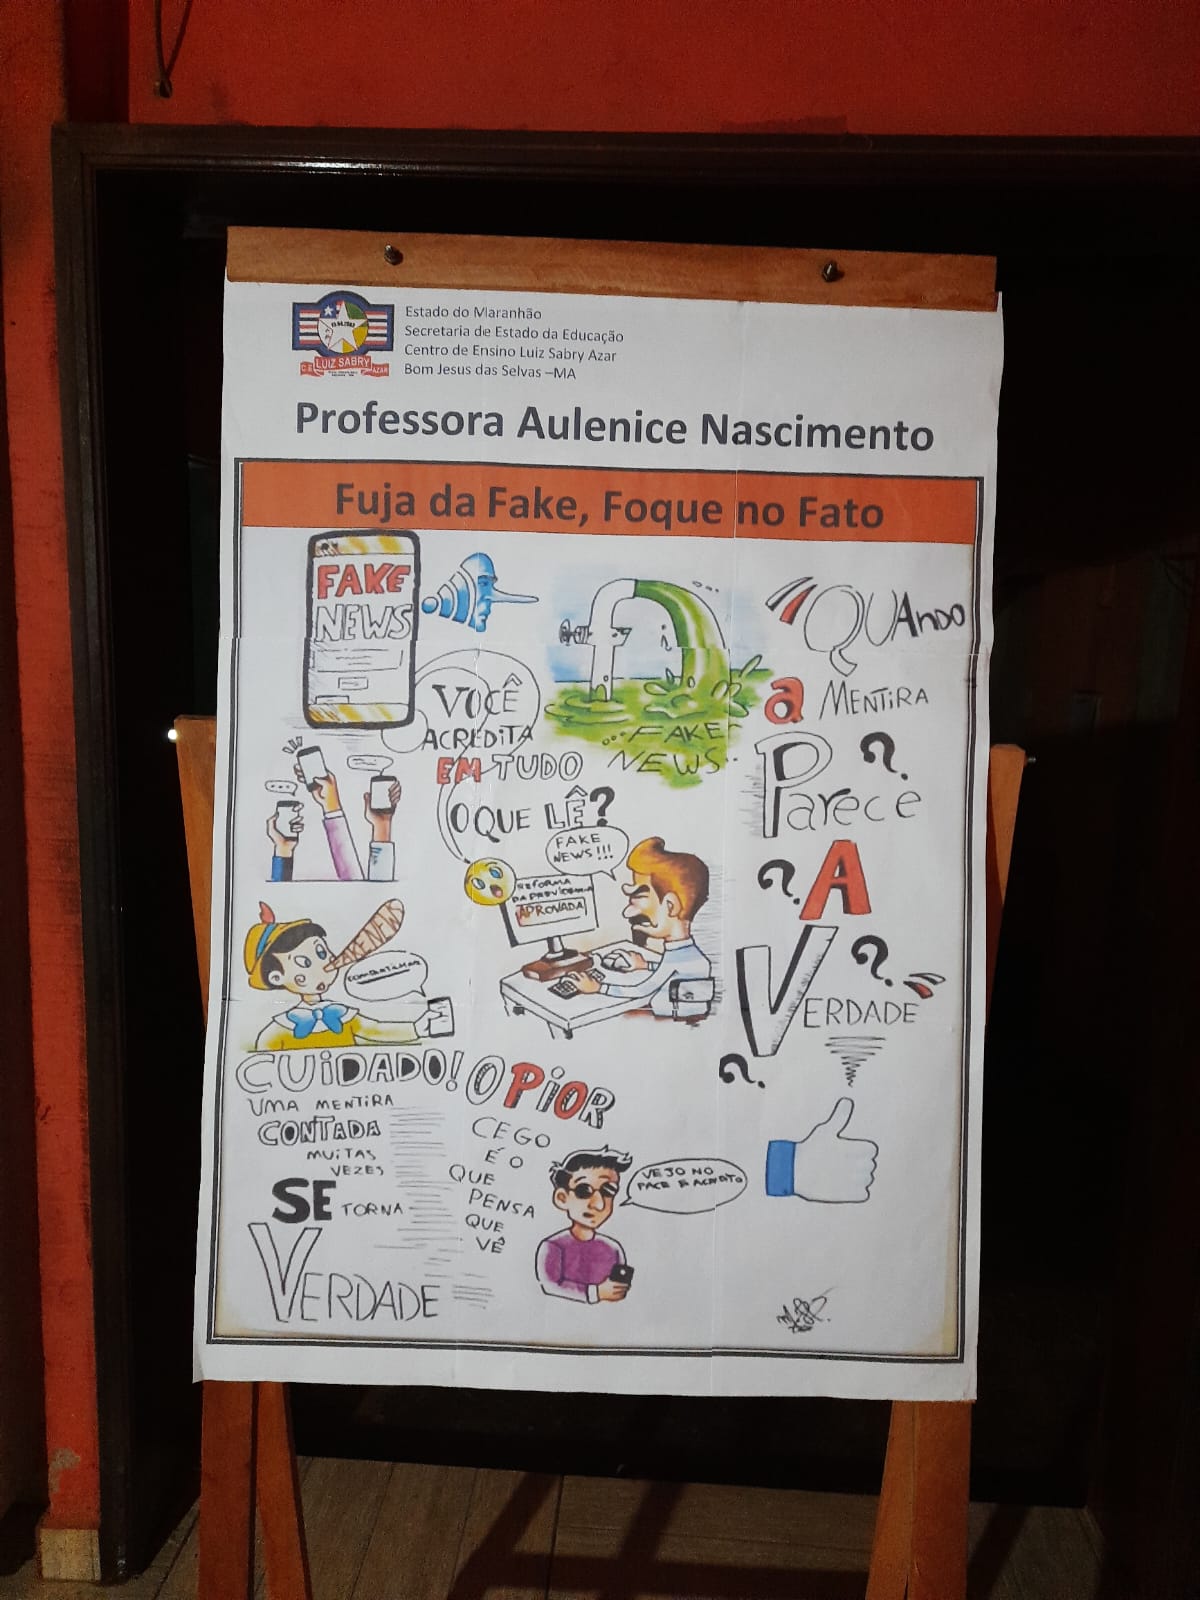 Estado do Maranhão
Secretaria de Estado da Educação
Centro de Ensino Luiz Sabry Azar
Bom Jesus das Selvas –MA
C.E. LUIZ SABRY AZAR
Professora Aulenice Nascimento
Fuja da Fake, Foque no Fato
FAKE
NEWS
VOCÊ
ACREDITA
EM TUDO
O QUE LÊ?
...FAKE
NEWS...
"QUANDO
a MENTIRA
Parece ?
? A
VERDADE ?"
?
FAKE
NEWS!!!
REFORMA
DA PREVIDENCIA
APROVADA
FAKE NEWS
CUIDADO!
UMA MENTIRA
CONTADA
MUITAS
VEZES
SE TORNA
VERDADE
O PIOR
CEGO
É O
QUE
PENSA
QUE
VÊ
VEJO NO
FACE E ACREDITO